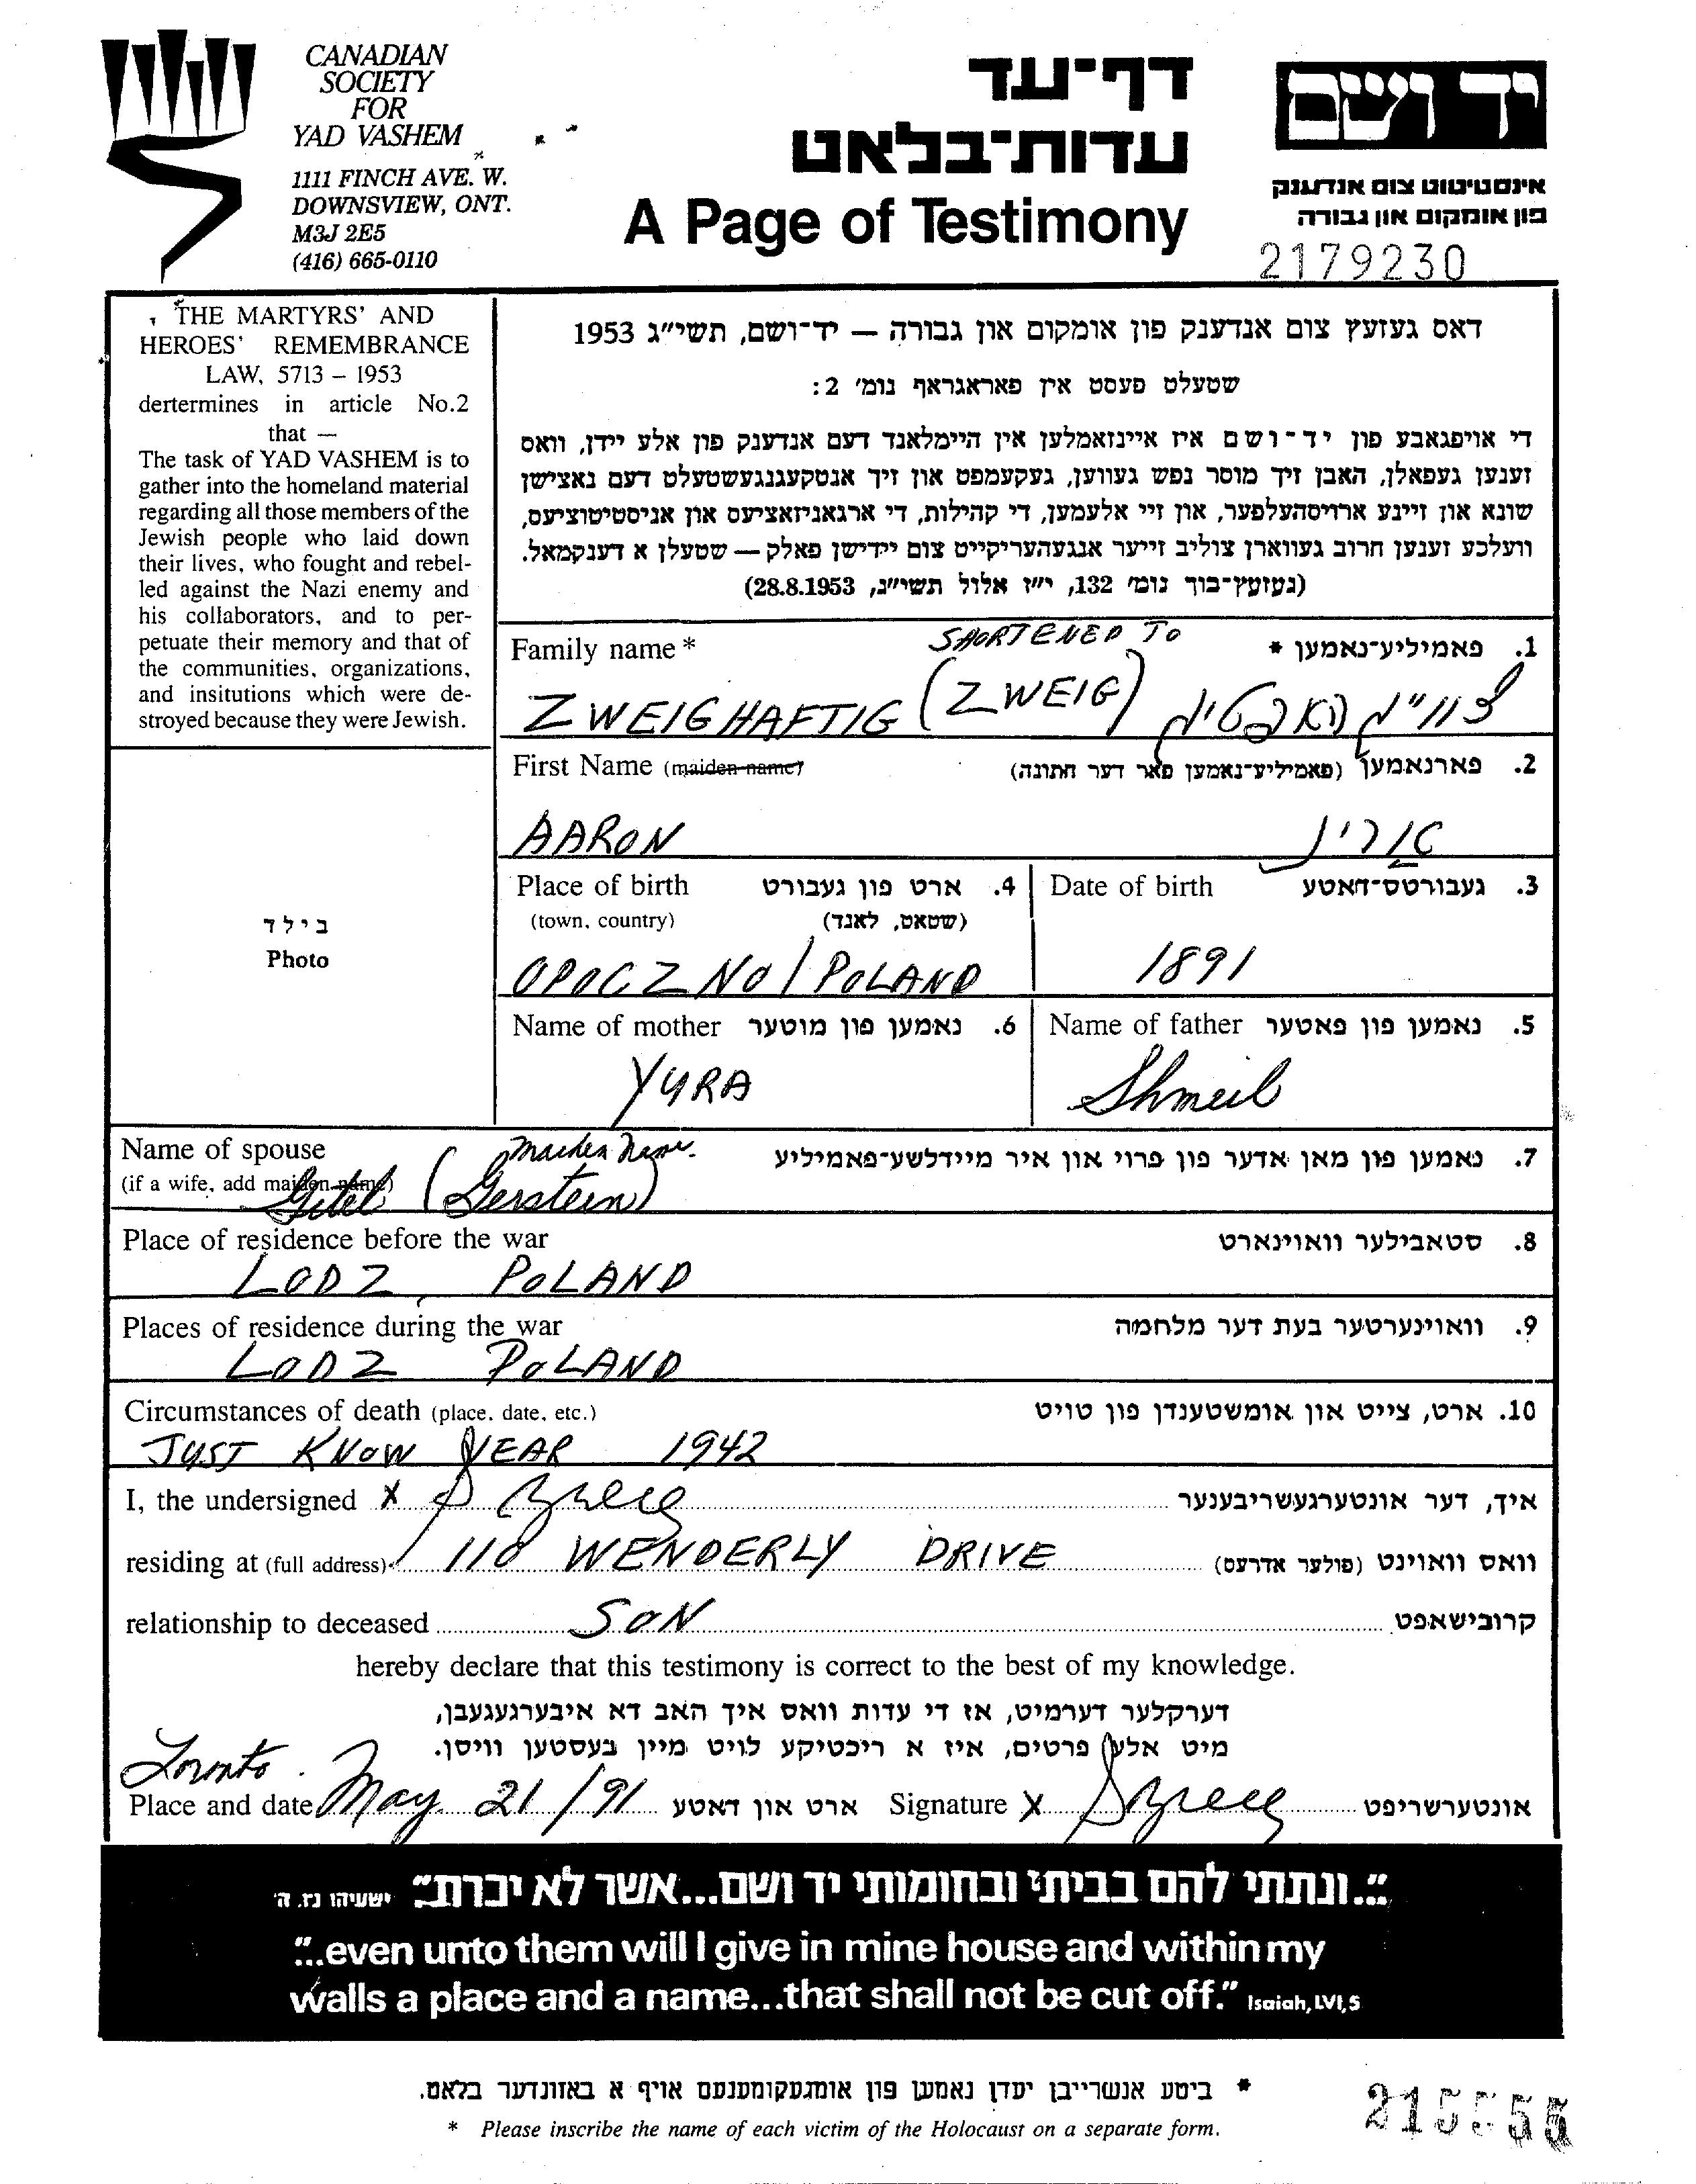 CANADIAN
SOCIETY
FOR
YAD VASHEM
1111 FINCH AVE. W.
DOWNSVIEW, ONT.
M3J 2E5
(416) 665-0110
דף־עד
עדות־בלאט
A Page of Testimony
יד ושם
אינסטיטוט צום אנדענק
פון אומקום און גבורה
2179230
THE MARTYRS' AND
HEROES' REMEMBRANCE
LAW, 5713 – 1953
dertermines in article No.2
that —
The task of YAD VASHEM is to
gather into the homeland material
regarding all those members of the
Jewish people who laid down
their lives, who fought and rebel-
led against the Nazi enemy and
his collaborators, and to per-
petuate their memory and that of
the communities, organizations,
and insitutions which were de-
stroyed because they were Jewish.
דאס געזעץ צום אנדענק פון אומקום און גבורה — יד־ושם, תשי״ג 1953
שטעלט פעסט אין פאראגראף נומ׳ 2:
די אויפגאבע פון יד־ושם איז איינזאמלען אין היימלאנד דעם אנדענק פון אלע יידן, וואס
זענען געפאלן, האבן זיך מוסר נפש געווען, געקעמפט און זיך אנטקעגנגעשטעלט דעם נאצישן
שונא און זיינע ארויסהעלפער, און זיי אלעמען, די קהילות, די ארגאניזאציעס און אניסטיטוציעס,
וועלכע זענען חרוב געווארן צוליב זייער אנגעהעריקייט צום יידישן פאלק — שטעלן א דענקמאל.
(געזעץ־בוך נומ׳ 132, י״ז אלול תשי״ג, 28.8.1953)
Family name *
SHORTENED TO
1. פאמיליע־נאמען *
ZWEIGHAFTIG (ZWEIG) צווייגהאפטיג
First Name (maiden name)
2. פארנאמען (פאמיליע־נאמען פאר דער חתונה)
AARON
Place of birth 4. ארט פון געבורט
(town, country) (שטאט, לאנד)
OPOCZNO / POLAND
Date of birth 3. געבורטס־דאטע
1891
Name of mother 6. נאמען פון מוטער
YURA
Name of father 5. נאמען פון פאטער
Shmeil
בילד
Photo
Name of spouse
maiden name.
7. נאמען פון מאן אדער פון פרוי און איר מיידלשע־פאמיליע
(if a wife, add maiden name)
Gitel (Gerstein)
Place of residence before the war
8. סטאבילער וואוינארט
LODZ, POLAND
Places of residence during the war
9. וואוינערטער בעת דער מלחמה
LODZ POLAND
Circumstances of death (place, date, etc.)
10. ארט, צייט און אומשטענדן פון טויט
JUST KNOW YEAR 1942
I, the undersigned X
איך, דער אונטערגעשריבענער
residing at (full address) 110 WENDERLY DRIVE
וואס וואוינט (פולער אדרעס)
relationship to deceased SON
קרובישאפט
hereby declare that this testimony is correct to the best of my knowledge.
דערקלער דערמיט, אז די עדות וואס איך האב דא איבערגעגעבן,
מיט אלע פרטים, איז א ריכטיקע לויט מיין בעסטען וויסן.
Toronto.
Place and date May 21/91 ארט און דאטע
Signature X
אונטערשריפט
״...ונתתי להם בביתי ובחומותי יד ושם...אשר לא יכרת״ ישעיהו נז, ה׳
"...even unto them will I give in mine house and within my
walls a place and a name...that shall not be cut off." Isaiah, LVI, 5
* ביטע אנשרייבן יעדן נאמען פון אומגעקומענעם אויף א באזונדער בלאט.
* Please inscribe the name of each victim of the Holocaust on a separate form.